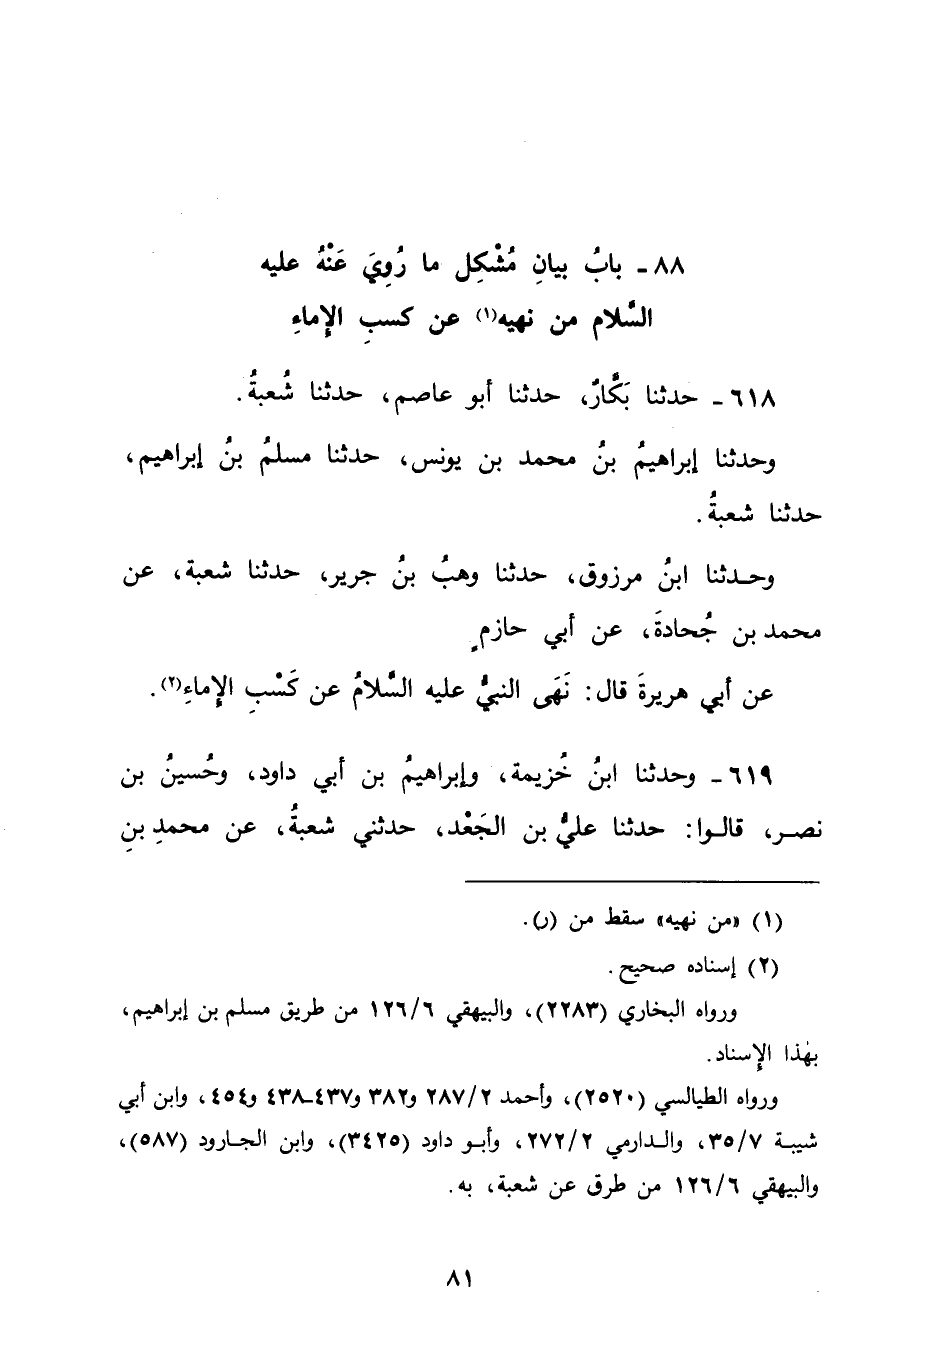 ٨٨ - بابُ بيانِ مُشْكِل ما رُوِيَ عَنْهُ عليه
السَّلام من نهيه(١) عن كسبِ الإِماءِ
٦١٨ - حدثنا بَكَّارٌ، حدثنا أبو عاصم، حدثنا شُعبةُ.
وحدثنا إبراهيمُ بنُ محمد بن يونس، حدثنا مسلمُ بنُ إبراهيم،
حدثنا شعبةُ.
وحدثنا ابنُ مرزوق، حدثنا وهبُ بنُ جرير، حدثنا شعبة، عن
محمد بن جُحادةَ، عن أبي حازمٍ
عن أبي هريرةَ قال: نَهَى النبيُّ عليه السَّلامُ عن كَسْبِ الإِماءِ(٢).
٦١٩ - وحدثنا ابنُ خُزيمة، وإبراهيمُ بن أبي داود، وحُسينُ بن
نصر، قالوا: حدثنا عليُّ بن الجَعْد، حدثني شعبةُ، عن محمدِ بنِ
(١) «من نهيه» سقط من (ر).
(٢) إسناده صحيح.
ورواه البخاري (٢٢٨٣)، والبيهقي ١٢٦/٦ من طريق مسلم بن إبراهيم،
بهٰذا الإِسناد.
ورواه الطيالسي (٢٥٢٠)، وأحمد ٢٨٧/٢ و٣٨٢ و٤٣٧-٤٣٨ و٤٥٤، وابن أبي
شيبة ٣٥/٧، والدارمي ٢٧٢/٢، وأبو داود (٣٤٢٥)، وابن الجارود (٥٨٧)،
والبيهقي ١٢٦/٦ من طرق عن شعبة، به.
٨١